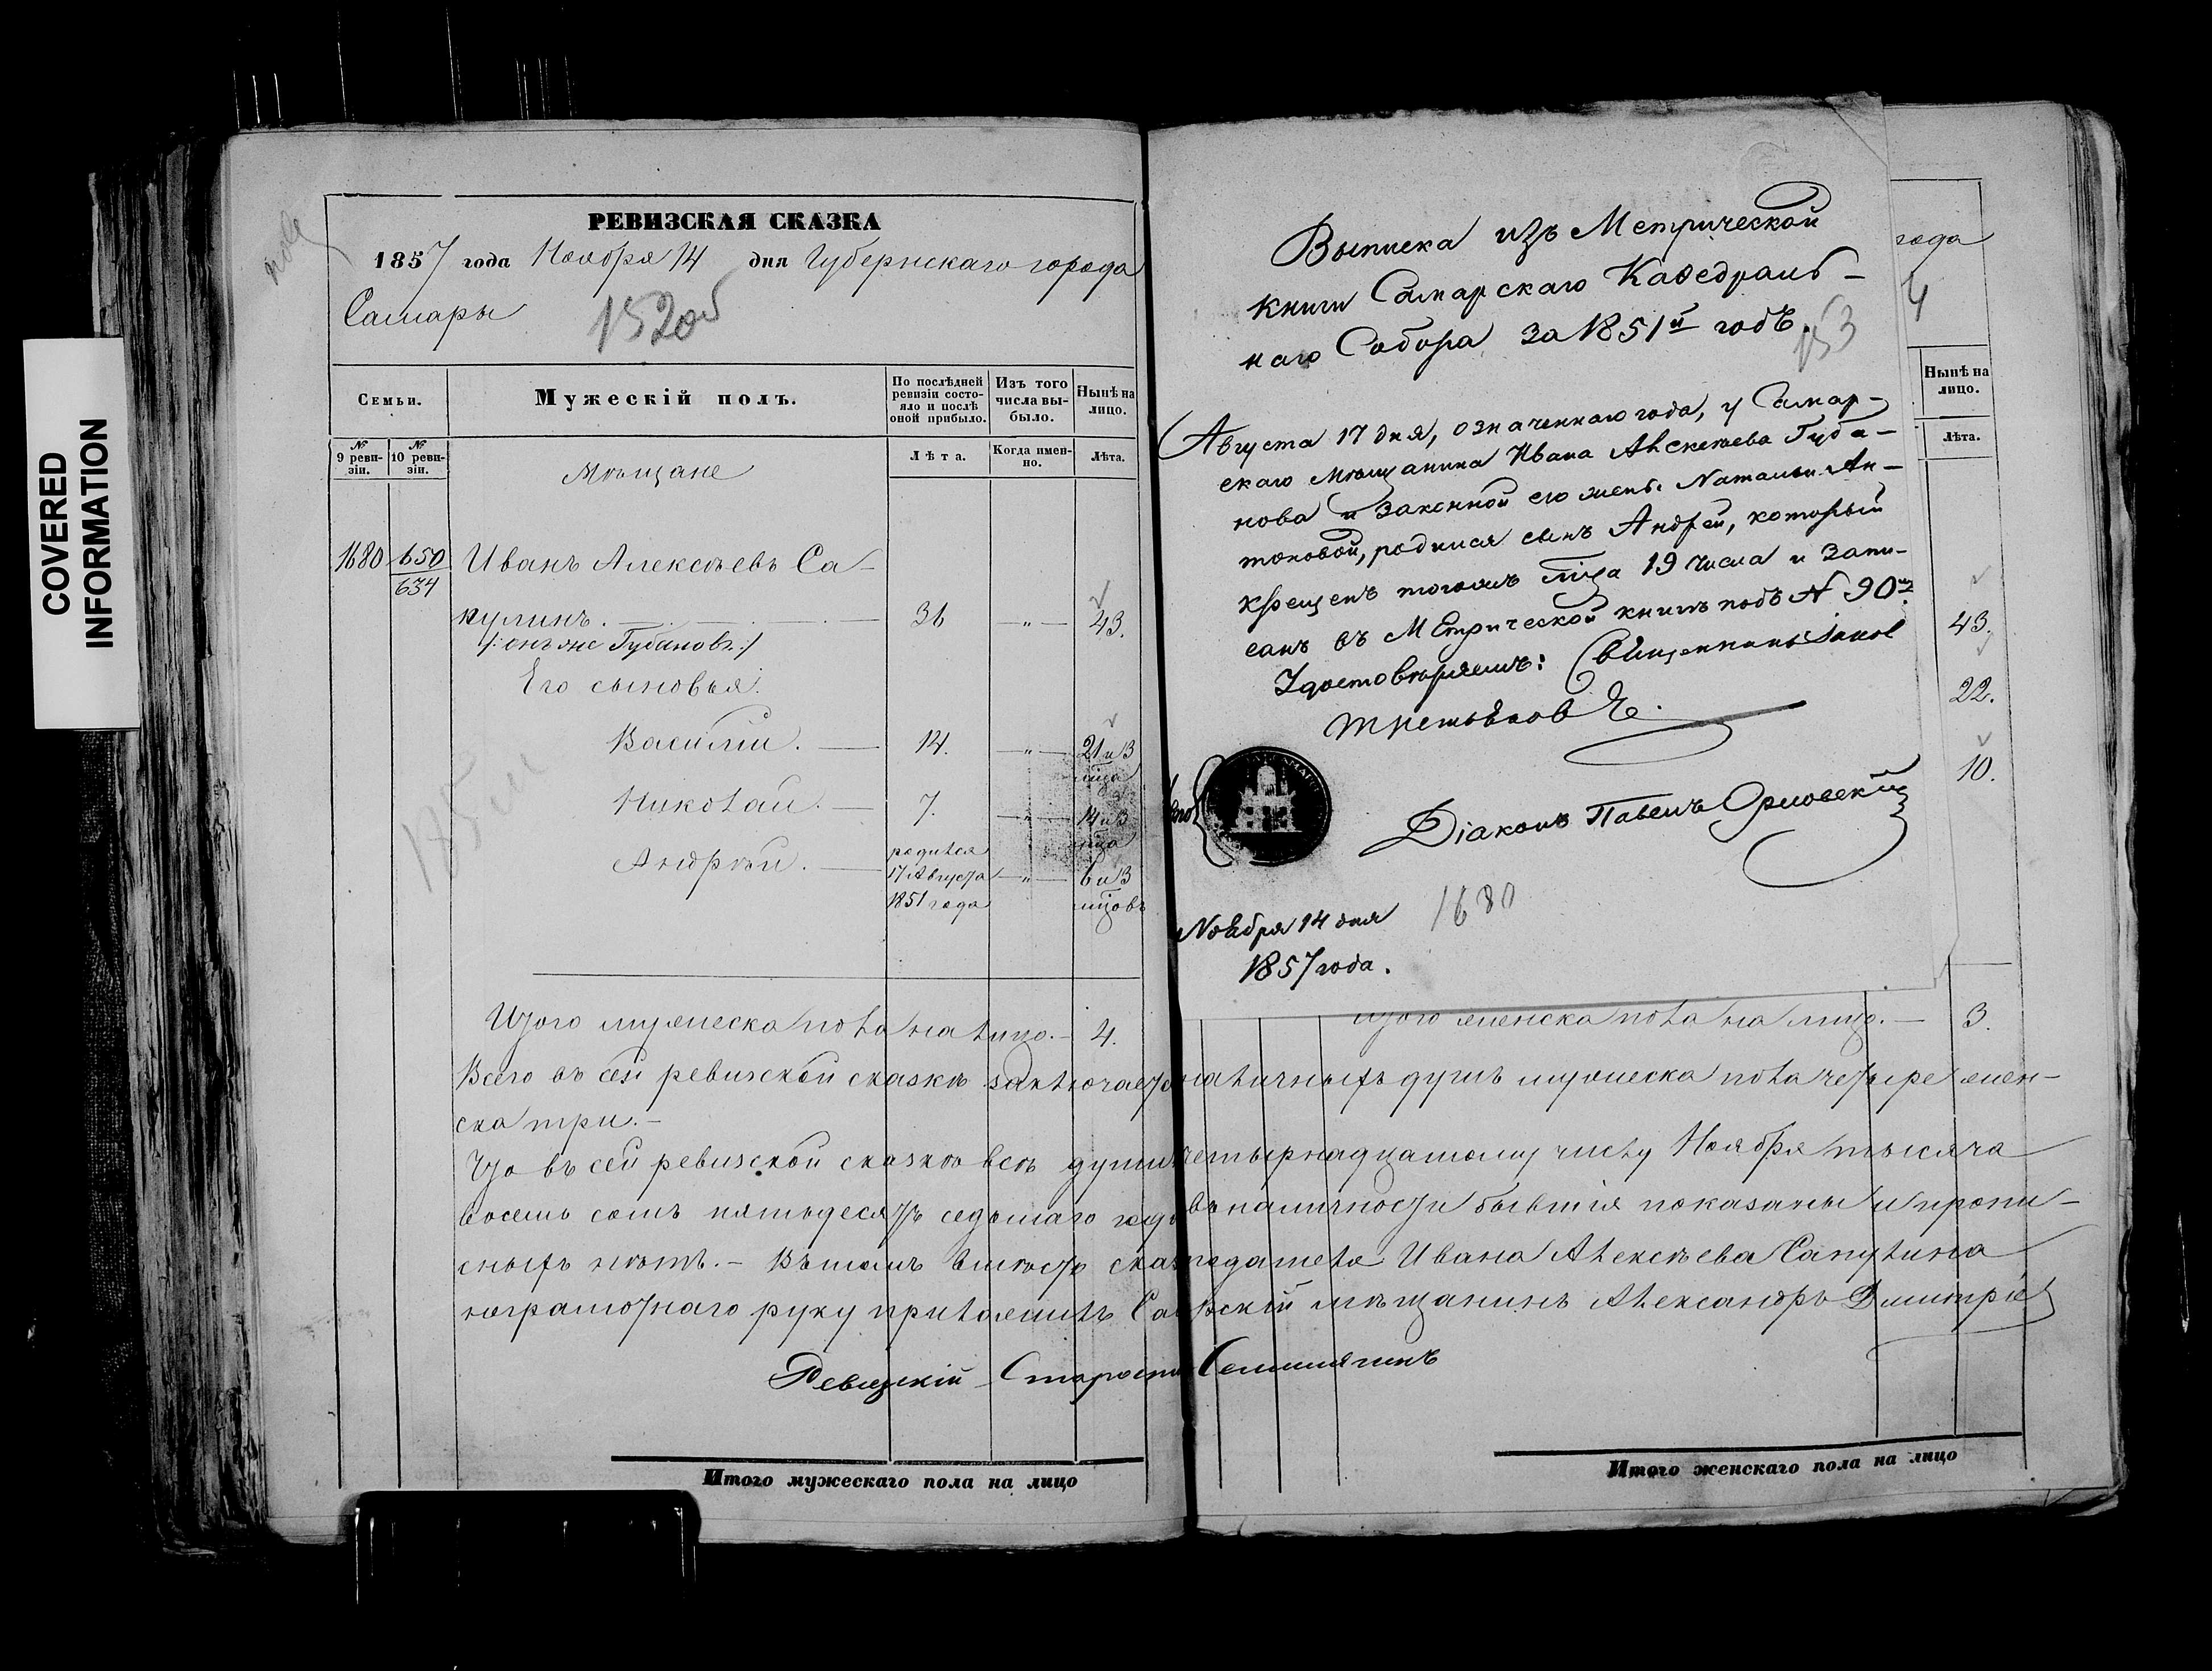 COVERED
INFORMATION
РЕВИЗСКАЯ СКАЗКА
1857 года Ноября 14 дня Губернскаго города
Самары
152об
Семьи.
Мужескій полъ.
По послѣдней ревизіи состояло и послѣ оной прибыло.
Изъ того числа выбыло.
Нынѣ на лицо.
№ 9 ревизіи.
№ 10 ревизіи.
Лѣта.
Когда именно.
Лѣта.
Мѣщане
1680 650 Иванъ Алексѣевъ Са-
634
пулинъ. 36 " 43.
/: онъ же Губановъ :/
Его сыновья:
Василій. 14. " 21 и 3
мца
Николай. 7. " 14 и 3
мца
Андрѣй. родился
17 Августа " 6 и 3
1851 года мцовъ
Итого мужеска пола на лицо. 4.
Выписка изъ Метрической
книги Самарскаго Каѳедраль-
наго Собора за 1851й годъ.
153
Августа 17 дня, означеннаго года, у Самар-
скаго мѣщанина Ивана Алексѣева Губа-
нова и законной его жены Натальи Ан-
тоновой, родился сынъ Андрей, который
крещенъ тогожъ мца 19 числа и запи-
санъ въ Метрической книгѣ подъ N 90м.
Удостовѣряемъ: Священникъ Іаков
Третьяковъ.
Діаконъ Павелъ Орловскій
Ноября 14 дня
1857 года.
1680
года
Нынѣ на лицо.
Лѣта.
43.
22.
10.
Итого женска пола на лицо. 3.
Всего въ сей ревизской сказкѣ заключается наличныхъ душъ мужеска пола четыре жен-
ска три.
Что въ сей ревизской сказкѣ всѣ души четырнадцатому числу Ноября тысяча
восемь сотъ пятьдесятъ седьмаго года въ наличности бывшія показаны и пропи-
сныхъ нѣтъ. Въ томъ вмѣсто сказкоподателя Ивана Алексѣева Сапулина
неграмотнаго руку приложилъ Самарскій мѣщанинъ Александръ Дмитріе
Ревизскій Староста
Итого мужескаго пола на лицо
Итого женскаго пола на лицо